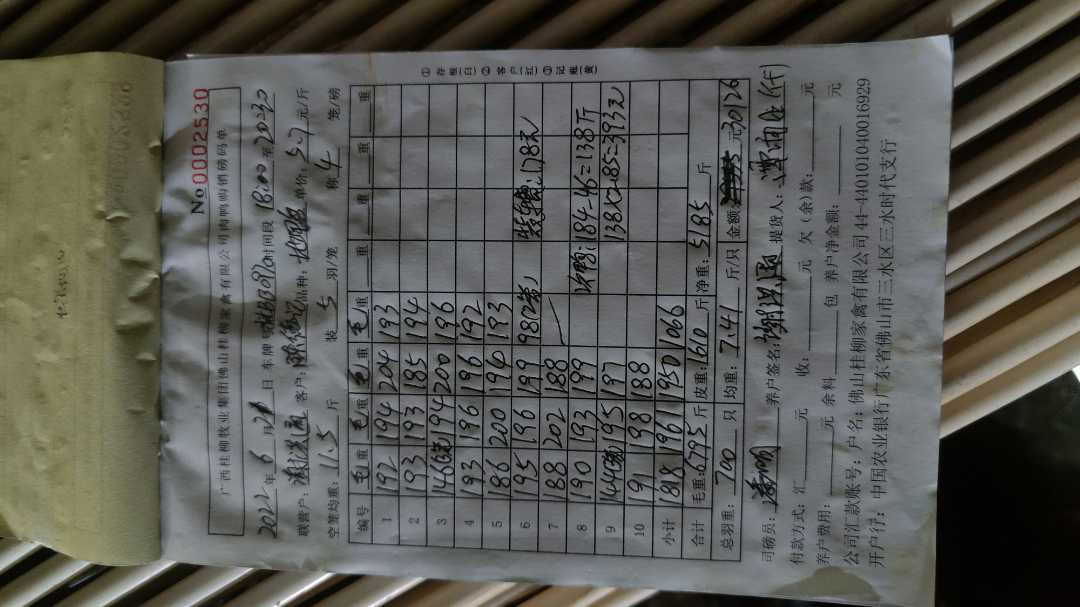 ① 存根(白) ② 客户(红) ③ 记账(黄)
No 0002530
广西桂柳牧业集团佛山桂柳家禽有限公司肉鸭购销磅码单
2022年6月21日 车牌 时间段 18:00至20:30
联营户: 客户: 品种: 单价:5.7元/斤
空笼均重:11.5斤 装5羽/笼 称4笼/磅
编号 毛重 毛重 毛重 毛重 重 重 重 重
1 192 194 204 193
2 193 193 185 194
3 146 194 200 196
4 193 196 196 192
5 186 200 194 193
6 195 196 199 98
7 188 202 188
8 190 193 199 184-46=138斤
9 144 195 197 138×2.85=393元
10 191 198 188
小计 1818 1961 1950 1066
合计 毛重:6795斤 皮重:1610斤 净重:5185斤
总羽重:700只 均重:7.41斤/只 金额: 元30126
司磅员: 养户签名: 提货人:
付款方式:汇 元 收: 元 欠(余)款: 元
养户费用: 元 余料 包 养户净金额: 元
公司汇款账号:户名:佛山桂柳家禽有限公司 44-440101040016929
开户行:中国农业银行广东省佛山市三水区三水时代支行